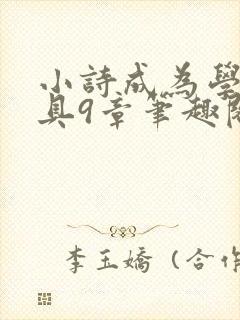 小詩成為學
具9章筆趣閣
李玉嬌（合作